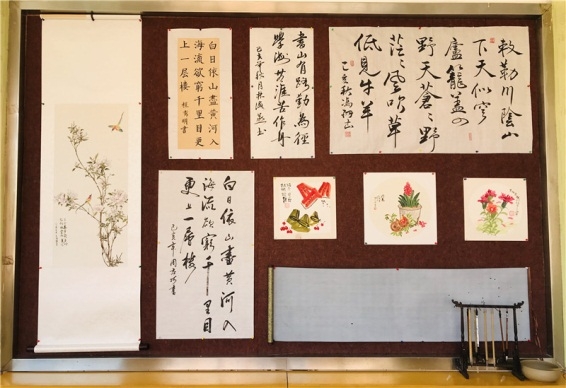 白日依山盡黄河入
海流欲窮千里目更
上一层楼
書山有路勤為徑
學海無涯苦作舟
敕勒川陰山
下天似穹
廬籠蓋四
野天蒼蒼野
茫茫風吹草
低見牛羊
白日依山盡黄河入
海流欲窮千里目
更上一層樓